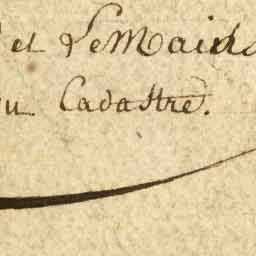 et Le Maire
du Cadastre.